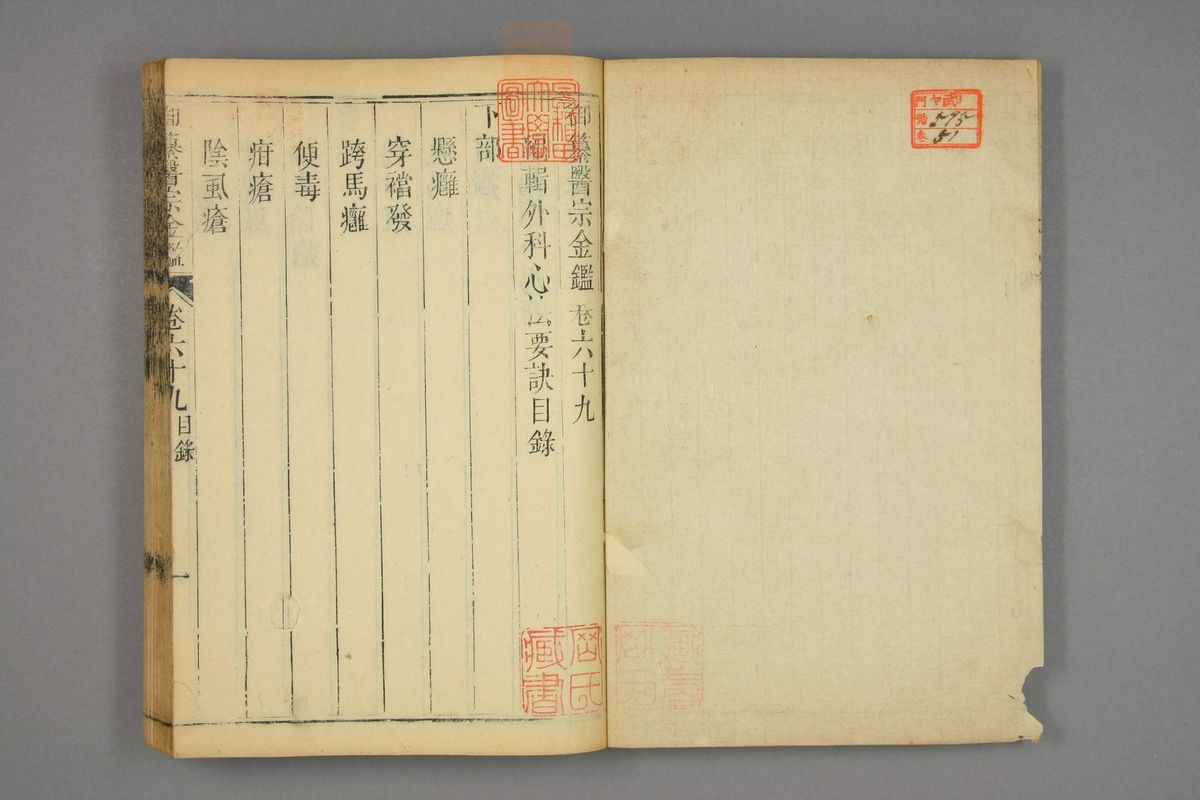 御纂醫宗金鑑 卷六十九
編輯外科心法要訣目錄
下部
懸癰
穿襠發
跨馬癰
便毒
疳瘡
陰虱瘡
御纂醫宗金鑑 卷六十九 目錄 一
圖書
岡氏藏書
575
51